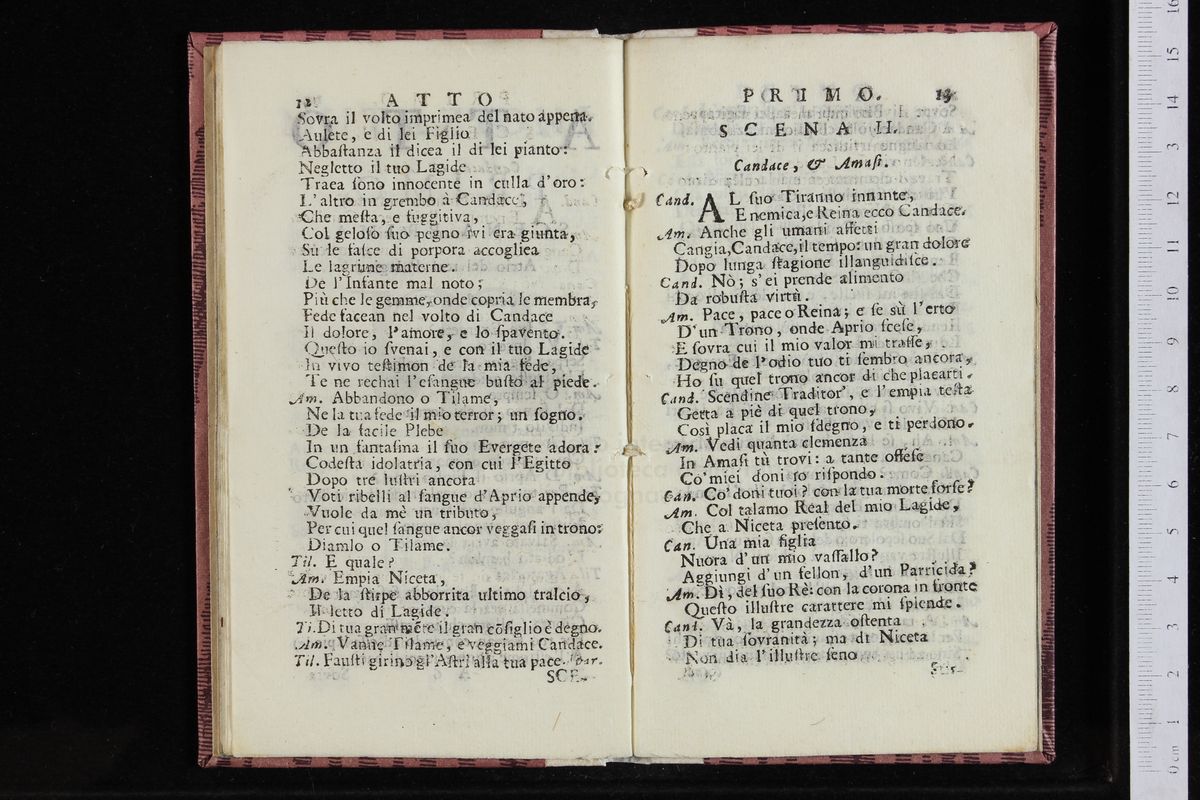 12 ATTO
Sovra il volto imprimea del nato appena.
Aulete, e di lei Figlio
Abbaſtanza il dicea il di lei pianto:
Negletto il tuo Lagide
Traea ſono innocente in culla d'oro:
L'altro in grembo à Candace,
Che meſta, e fuggitiva,
Col geloſo ſuo pegno ivi era giunta,
Sù le faſce di porpora accogliea
Le lagrime materne.
De l'Infante mal noto;
Più che le gemme, onde copria le membra,
Fede facean nel volto di Candace
Il dolore, l'amore, e lo ſpavento.
Queſto io ſvenai, e con il tuo Lagide
In vivo teſtimon de la mia fede,
Te ne rechai l'eſangue buſto al piede.
Am. Abbandono o Tilame,
Ne la tua fede il mio terror; un ſogno.
De la facile Plebe
In un fantaſma il ſuo Evergete adora:
Codeſta idolatria, con cui l'Egitto
Dopo tre luſtri ancora
Voti ribelli al ſangue d'Aprio appende,
Vuole da mè un tributo,
Per cui quel ſangue ancor veggaſi in trono:
Diamlo o Tilame.
Til. E quale?
Am. Empia Niceta,
De la ſtirpe abborrita ultimo tralcio,
Il letto di Lagide.
Ti. Di tua gran mẽte il gran cõſiglio è degno.
Am. Vanne Tilame, e veggiami Candace.
Til. Fauſti girino gl'Aſtri alla tua pace. par.
SCE-
PRIMO. 13
SCENA II.
Candace, & Amaſi.
Cand. AL ſuo Tiranno innante,
E nemica, e Reina ecco Candace.
Am. Anche gli umani affetti
Cangia, Candace, il tempo: un gran dolore
Dopo lunga ſtagione illanguidiſce.
Cand. Nò; s'ei prende alimento
Da robuſta virtù.
Am. Pace, pace o Reina; e ſe sù l'erto
D'un Trono, onde Aprio ſceſe,
E ſovra cui il mio valor mi traſſe,
Degno de l'odio tuo ti ſembro ancora,
Ho ſu quel trono ancor di che placarti.
Cand. Scendine Traditor, e l'empia teſta
Getta a piè di quel trono,
Così placa il mio ſdegno, e ti perdono.
Am. Vedi quanta clemenza
In Amaſi tù trovi: a tante offeſe
Co' miei doni ſo riſpondo.
Can. Co' doni tuoi? con la tua morte forſe?
Am. Col talamo Real del mio Lagide,
Che a Niceta preſento.
Can. Una mia figlia
Nuora d'un mio vaſſallo?
Aggiungi d'un fellon, d'un Parricida?
Am. Dì, del ſuo Rè: con la corona in fronte
Queſto illuſtre carattere mi ſplende.
Cand. Và, la grandezza oſtenta
Di tua ſovranità; ma di Niceta
Non dia l'illuſtre ſeno